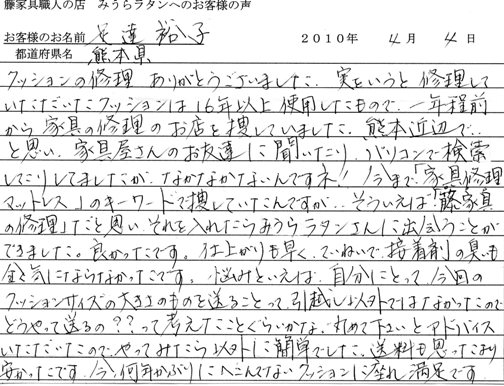 藤家具職人の店 みうらラタンへのお客様の声
お客様のお名前 安達 裕子 2010年 4月 4日
都道府県名 熊本県
クッションの修理 ありがとうございました。実をいうと修理して
いただいたクッションは16年以上使用したもので、一年程前
から家具の修理のお店を捜していました。熊本近辺で…
と思い、家具屋さんのお友達に聞いたり、パソコンで検索
してこりしてましたが、なかなかないんですネ! 今まで「家具修理
マットレス」のキーワードで捜していたんですが、そういえば「藤家具
の修理」だと思い、それを入れたらみうらラタンさんに出会うことが
できました。良かったです。仕上がりも早く、ていねいで、接着剤の臭いも
全く気にならなかったです。悩みといえば、自分にとって、今回の
クッションサイズの大きさのものを送ることって引越し以外ではなかったので
どうやって送るの??って考えたことぐらいかな。丸めて下さいとアドバイス
いただいたので、やってみたら以外に簡単でした。送料も思ったより
安かったです。今、何年かぶりにへこんでないクッションに座れ満足です。